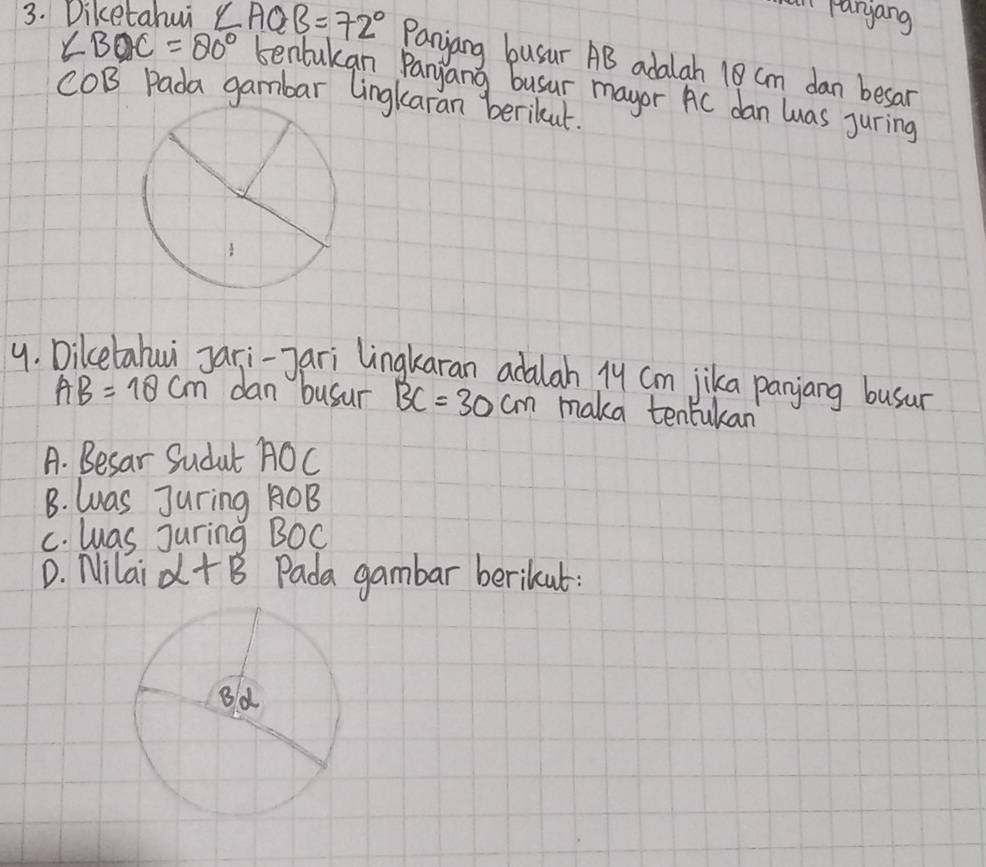 panjang
3. Diketahui ∠AOB = 72° Panjang busur AB adalah 18 cm dan besar
∠BOC = 80° tentukan Panjang busur mayor AC dan luas juring
COB Pada gambar lingkaran berikut.
4. Diketahui Jari-Jari lingkaran adalah 14 cm jika panjang busur
AB = 18 cm dan busur BC = 30 cm maka tentukan
A. Besar Sudut AOC
B. luas Juring AOB
C. luas juring BOC
D. Nilai α + B Pada gambar berikut:
B α